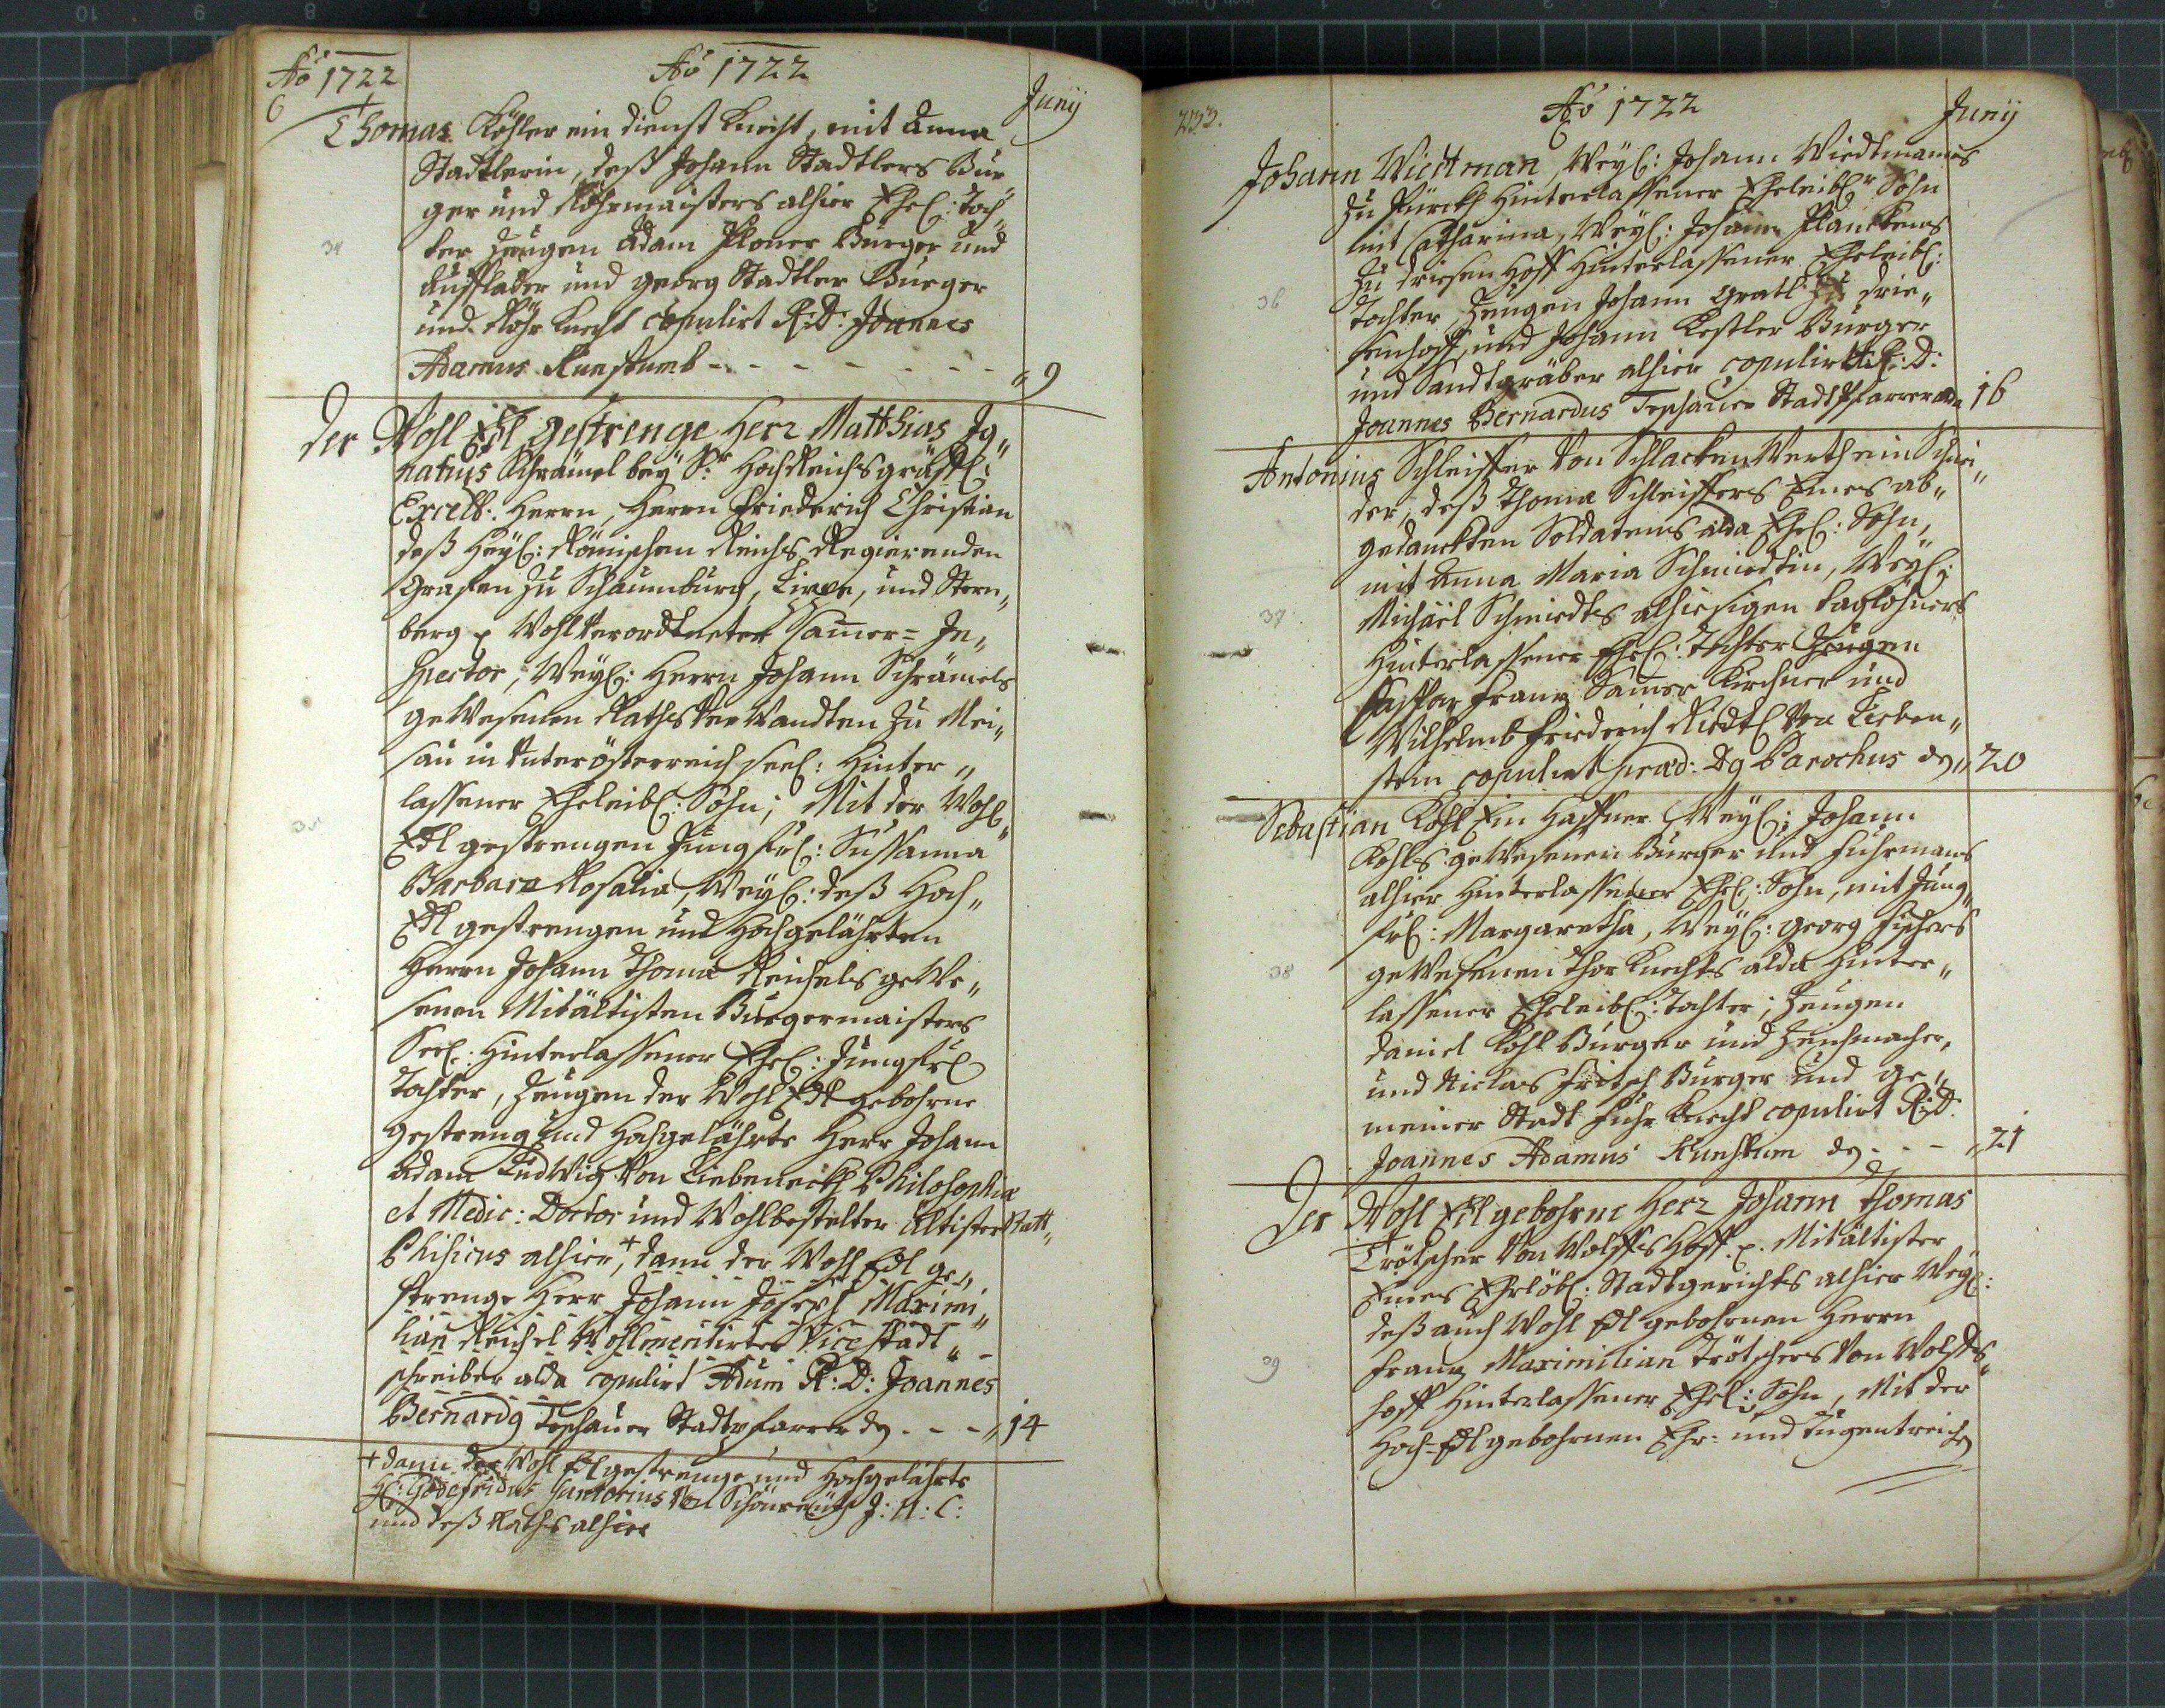 Aõ 1722
Aõ 1722
Junij
Thomas Köhler ein dienst knecht, mit Anna
Stadtlerin, deß Johann Stadtlers Bur
ger und Röhrmaisters alhier Ehel: toch„
ter Zeugen Adam Ploner Burger und
Aufflader und Georg Stadtler Burger
und Röhr knecht copulirt R: D: Joannes
Adamus Kunstumb - - - - - - - „ 9
34
Der Wohl Edl Gestrenge Herr Matthias Ig„
natius Schrämel bey Sr: Hochreichsgräffl:
Excell: Herrn, Herrn Friederich Christian
deß Heyl: Römischen Reichs Regierenden
Grafen zu Schaumburg, Lippe, und Stern„
berg p Wohl Verordtneter Cam̄er= In„
spector, Weyl: Herrn Johann Schrämels
geWesenen Raths VerWandten zu Mei„
sau in Unterösterreich seel: Hinter„
lassener Eheleibl: Sohn; Mit der Wohl
Edl gestrengen Jungfrl: Susanna
35
Barbara Rosalia, Weyl: deß Hoch„
Edl gestrengen und Hochgelährten
Herrn Johann Thoma Reichels geWe„
senen Mitältisten Burgermaisters
Seel: Hinterlassener Ehel: Jungfrl
Tochter, Zeugen der Wohl Edl gebohrne
Gestreng und Hochgelährte Herr Johann
Adam Ludwig Von Liebeneckh Philosophiæ
et Medic: Doctor und Wohlbestelter ältister Statt„
Phisicus alhier +, dann der Wohl Edl ge„
strenge Herr Johann Joseph Maximi„
lian Reichel Wohlmeritirter Vice stadt„
schreiber alda copulirt Adum R: D: Joannes
Bernardg Tephauer Stadtpfarrer dg. - - „ 14
+ dann der Wohl Edl gestrenge und Hochgelährte
H: Godefridus Sartorius Von J: U: C:
und deß Raths alhier
233.
Aõ 1722
Junij
Johann Wiedtman, Weyl: Johann Wiedtmanns
zu Hinterlassener Eheleiblr Sohn
mit Catharina, Weyl: Johann Planckens
zu driesen Hoff Hinterlassener Eheleibl:
Tochter, Zeugen Johann Gratl zu drie„
senhoff, und Johann Kestler Burger
36
und Sandtgräber alhier copulirt A: R: D:
Joannes Bernardus Tephauer Stadtpfarrer alda 16
Antonius Schleiffer Von SchlackenWerth ein Schnei„
der, deß Thoma Schleiffers Eines ab„
gedanckten Soldatens alda Ehel: Sohn,
mit Anna Maria Schmiedtin, Weyl:
Michäel Schmiedts alhiesigen taglöhners
37
Hinterlassener Ehel: Tochter Zeugen
Caspar Frantz Kirchner und
Wilhelmb Friederich Riedl Von Lieben„
stein copulirt præd: Dg Parochus dg „ 20
Sebastian Kohl Ein Haffner Weyl: Johann
Kohls geWesenen Burger und Fuhrmans
alhier Hinterlassener Ehel: Sohn, mit Jung„
frl: Margaretha, Weyl: Georg Fischers
geWesenen thor knechts alda Hinter„
38
lassener Eheleibl: Tochter; Zeugen
Daniel Kohl Burger und Zeuchmacher,
und Niclas Fritsch Burger und ge„
meiner Stadt Fuhr knecht copulirt R: D:
Joannes Adamus Kunstum dg. - - „ 21
Der Wohl Edl gebohrne Herr Johann Thomas
Trötscher Von Wolffshoff p. Mitältister
Eines Ehrlöbl: Stadtgerichts alhier Weyl:
deß auch Wohl Edl gebohrnen Herrn
Frantz Maximilian Trötschers Von Wolffs„
39
hoff Hinterlassener Ehel: Sohn, Mit der
Hoch-Edl gebohrnen Ehr- und Tugentreichen